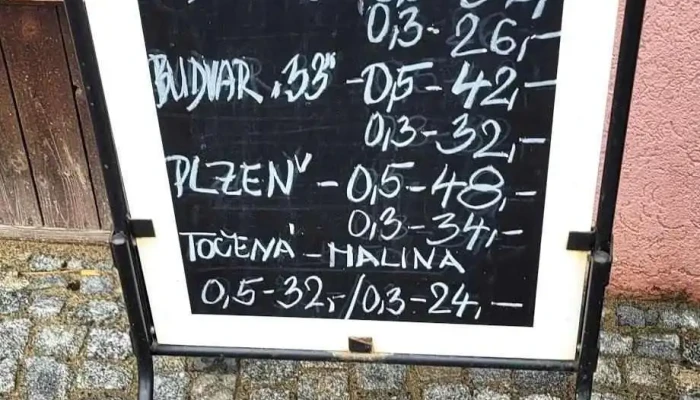 0,3 - 26,-
BUDVAR „33" - 0,5 - 42,-
0,3 - 32,-
PLZEŇ - 0,5 - 48,-
0,3 - 34,-
TOČENÁ - MALINA
0,5 - 32,- / 0,3 - 24,-